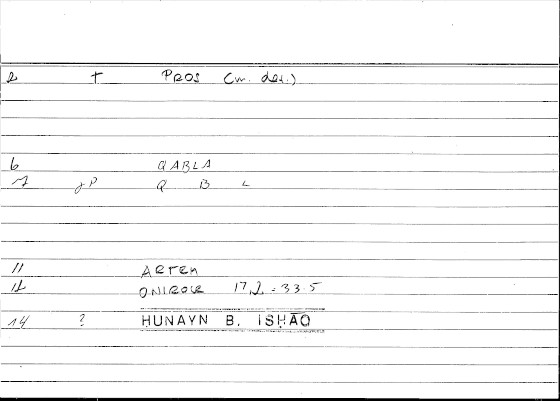 2 + PROS (w. dat.)
6 QABLA
7 Q B L
11 ARTEM
12 ONIROCR 17,2 = 33.5
14 ? HUNAYN B. ISḤĀQ